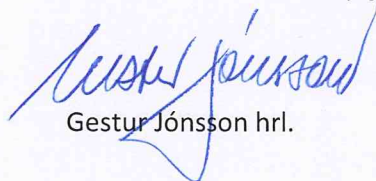 Gestur Jónsson
Gestur Jónsson hrl.